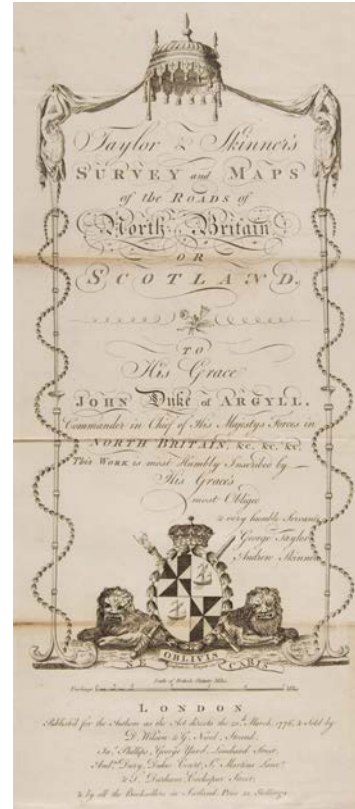 Taylor & Skinner's
SURVEY and MAPS
of the ROADS of
North Britain
OR
SCOTLAND.
TO
His Grace
JOHN Duke of ARGYLL.
Commander in Chief of His Majestys Forces in
NORTH BRITAIN, &c. &c. &c.
This WORK is most Humbly Inscribed by
His Grace's
most Obliged
& very humble Servants
George Taylor
Andrew Skinner
NE OBLIVIS CARIS
Scale of British Statute Miles
Furlongs Miles
LONDON
Published for the Authors as the Act directs the 20th March, 1776, & Sold by
D. Wilson & G. Nicol, Strand,
Jas. Phillips, George Yard, Lombard Street,
Andw. Dury, Dukes Court, St. Martins Lane,
& T. Durham, Cockspur Street,
& by all the Booksellers in Scotland. Price 12 Shillings